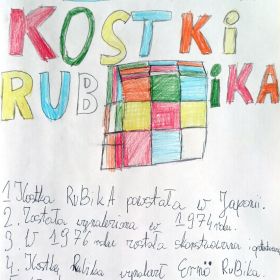 KOSTKI
RUBIKA
1 Kostka RuBikA powstała w Japonii.
2. Została wynaleziona w 1974 roku.
3. W 1976 roku została skonstruowana i
4. Kostkę Rubika wynalazł Ernő RuBika